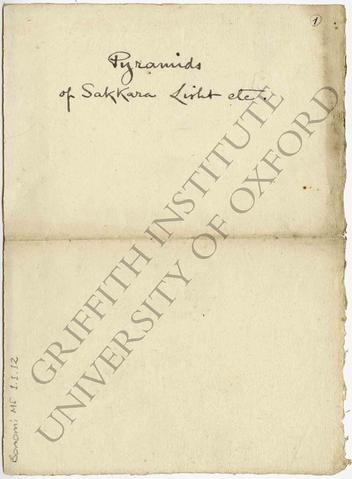 1
Pyramids
of Sakkara Lisht etc.
GRIFFITH INSTITUTE
UNIVERSITY OF OXFORD
Bonomi MS 1.1.12